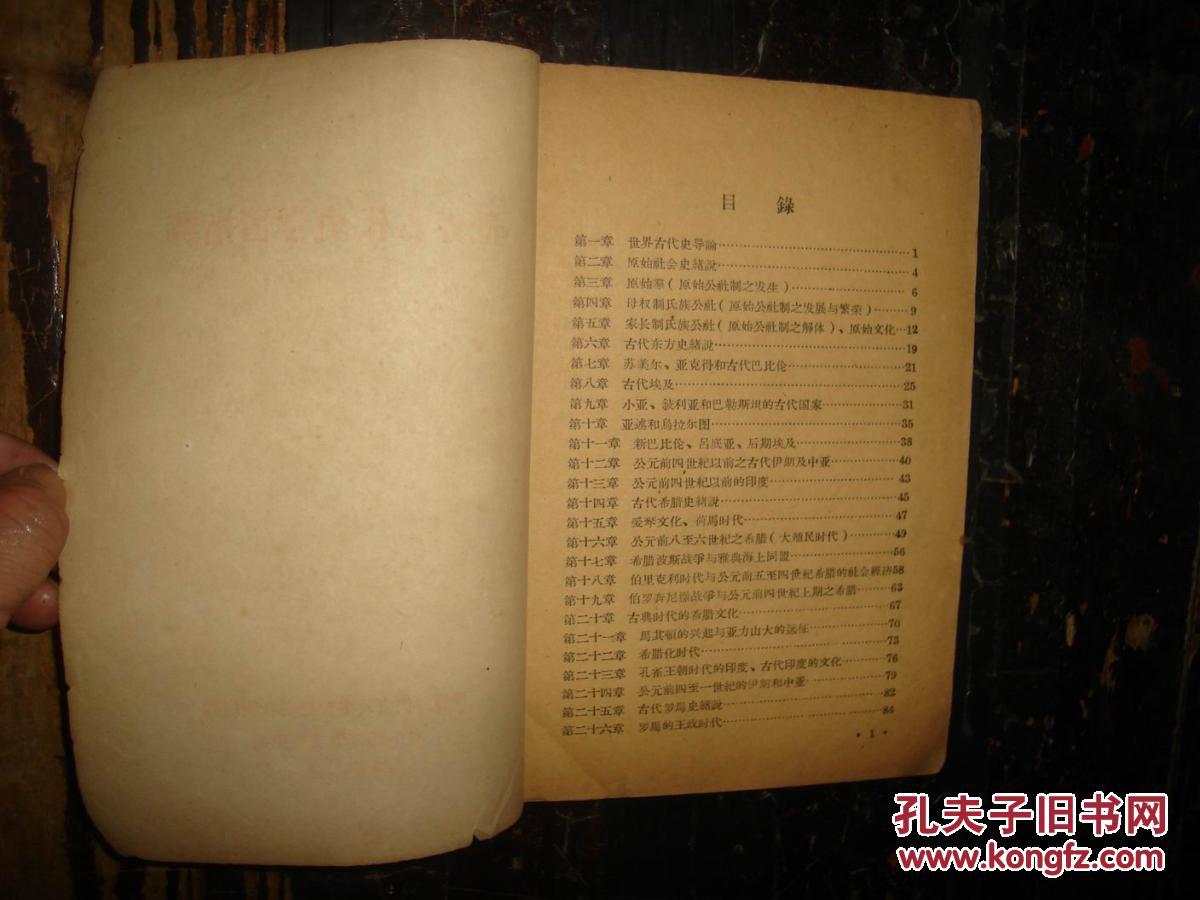 目 錄
第一章 世界古代史导論……1
第二章 原始社会史緒說……4
第三章 原始羣(原始公社制之发生)……6
第四章 母权制氏族公社(原始公社制之发展与繁荣)……9
第五章 家长制氏族公社(原始公社制之解体)、原始文化…12
第六章 古代东方史緒說……19
第七章 苏美尔、亚克得和古代巴比伦……21
第八章 古代埃及……25
第九章 小亚、敍利亚和巴勒斯坦的古代国家……31
第十章 亚述和烏拉尔图……35
第十一章 新巴比伦、呂底亚、后期埃及……38
第十二章 公元前四世紀以前之古代伊朗及中亚……40
第十三章 公元前四世紀以前的印度……43
第十四章 古代希腊史緒說……45
第十五章 爱琴文化、荷馬时代……47
第十六章 公元前八至六世紀之希腊(大殖民时代)……49
第十七章 希腊波斯战爭与雅典海上同盟……56
第十八章 伯里克利时代与公元前五至四世紀希腊的社会經济58
第十九章 伯罗奔尼撒战爭与公元前四世紀上期之希腊……63
第二十章 古典时代的希腊文化……67
第二十一章 馬其頓的兴起与亚力山大的远征……70
第二十二章 希腊化时代……73
第二十三章 孔雀王朝时代的印度、古代印度的文化……76
第二十四章 公元前四至一世紀的伊朗和中亚……79
第二十五章 古代罗馬史緒說……82
第二十六章 罗馬的王政时代……84
• 1 •
孔夫子旧书网
www.kongfz.com